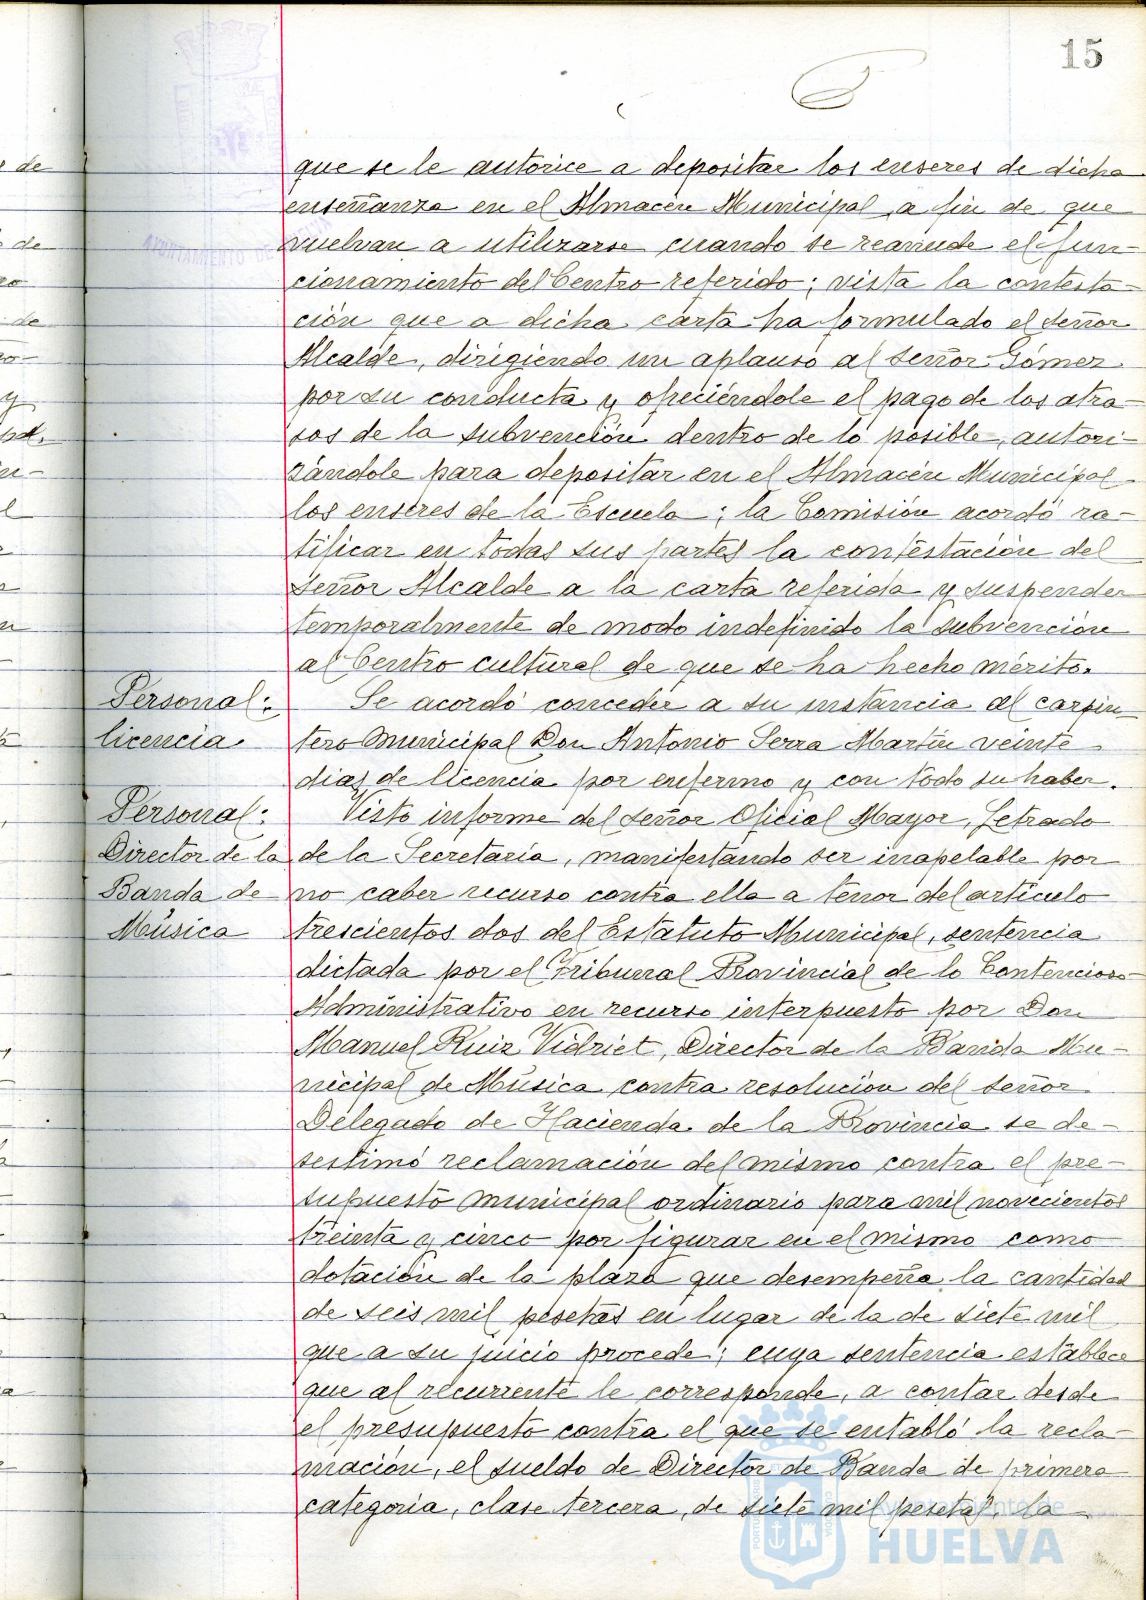 15
que se le autorice a depositar los enseres de dicha
enseñanza en el Almacén Municipal a fin de que
vuelvan a utilizarse cuando se reanude el fun-
cionamiento del Centro referido; vista la contesta-
ción que a dicha carta ha formulado el señor
Alcalde, dirigiendo un aplauso al señor Gómez
por su conducta y ofreciéndole el pago de los atra-
sos de la subvención dentro de lo posible, autori-
zándole para depositar en el Almacén Municipal
los enseres de la Escuela; la Comisión acordó ra-
tificar en todas sus partes la contestación del
señor Alcalde a la carta referida y suspender
temporalmente de modo indefinido la subvención
al Centro cultural de que se ha hecho mérito.
Personal:
licencia
Se acordó conceder a su instancia al carpin-
tero Municipal Don Antonio Serra Martín veinte
dias de licencia por enfermo y con todo su haber.
Personal:
Director de la
Banda de
Música
Visto informe del señor Oficial Mayor, Letrado
de la Secretaría, manifestando ser inapelable por
no caber recurso contra ella a tenor del artículo
trescientos dos del Estatuto Municipal, sentencia
dictada por el Tribunal Provincial de lo Contencioso-
Administrativo en recurso interpuesto por Don
Manuel Ruiz Vidriet, Director de la Banda Mu-
nicipal de Música contra resolución del señor
Delegado de Hacienda de la Provincia se de-
sestimó reclamación del mismo contra el pre-
supuesto municipal ordinario para mil novecientos
treinta y cinco por figurar en el mismo como
dotación de la plaza que desempeña la cantidad
de seis mil pesetas en lugar de la de siete mil
que a su juicio procede; cuya sentencia establece
que al recurrente le corresponde, a contar desde
el presupuesto contra el que se entabló la recla-
mación, el sueldo de Director de Banda de primera
categoria, clase tercera, de siete mil pesetas, la
Ayuntamiento de
HUELVA